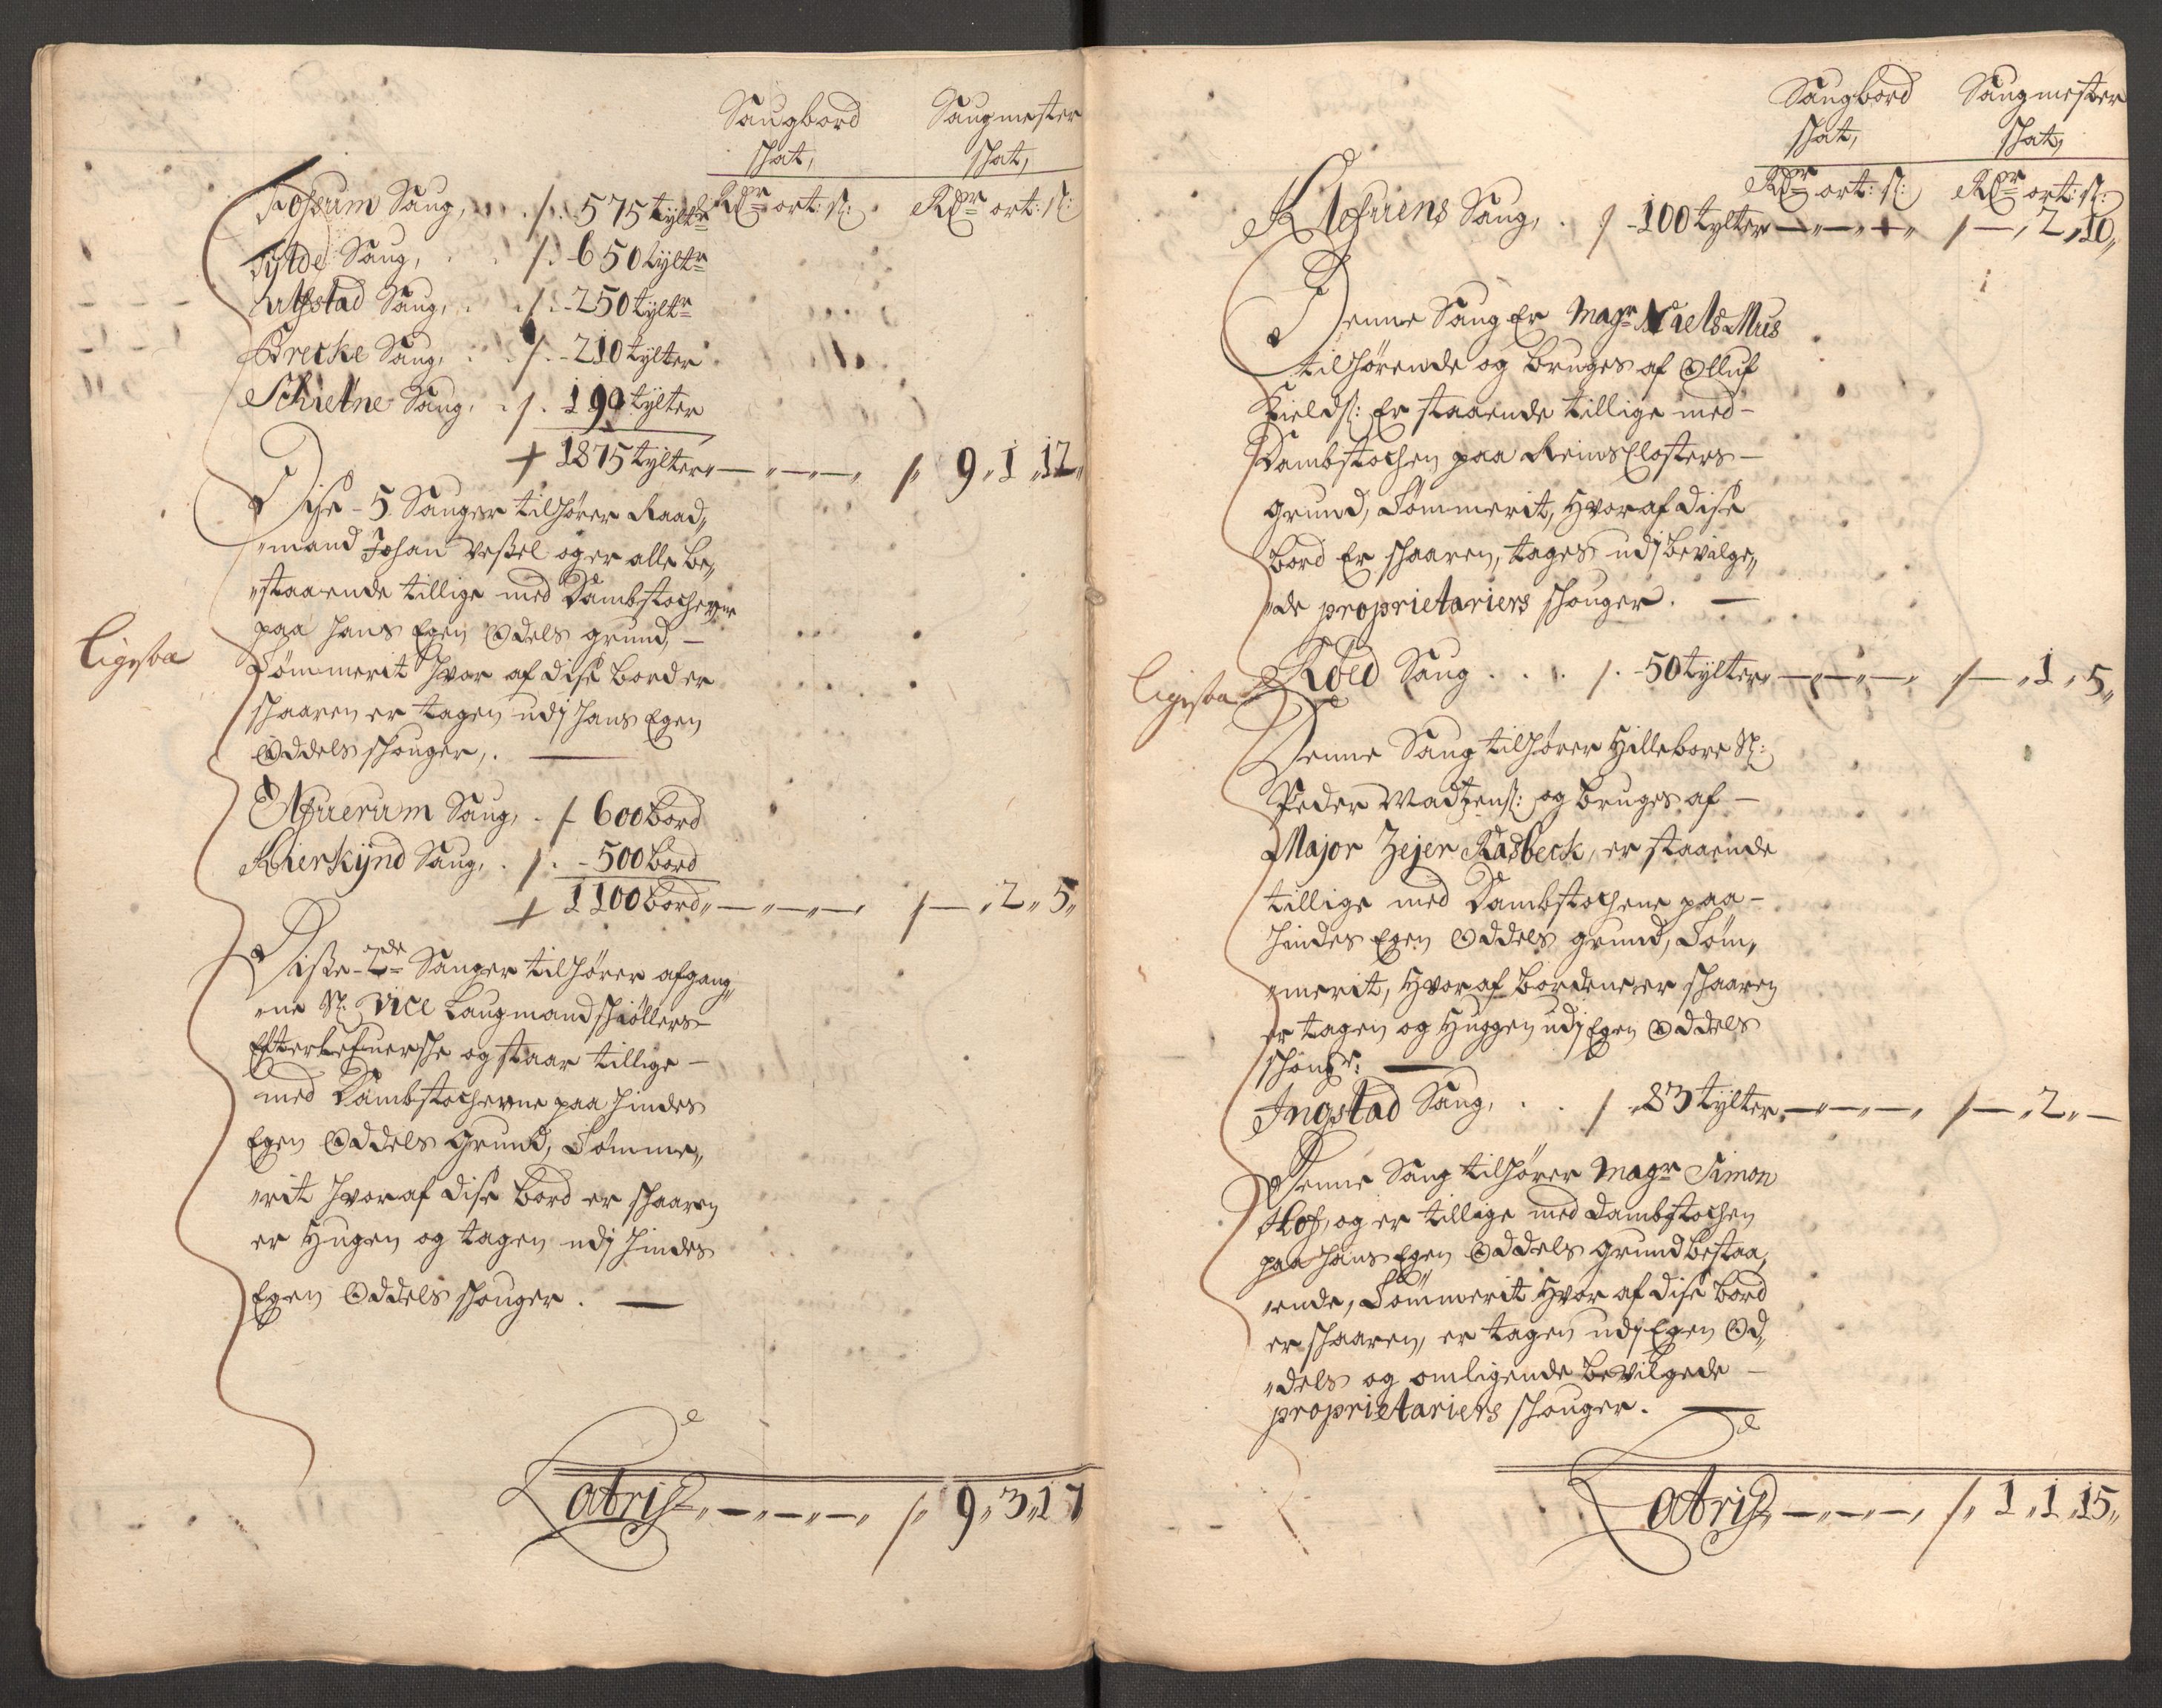 Saugbord Saugmester
skat, skat,
Rdr ort: s: Rdr ort: s:
Fossum Saug, . /. 575 tyltr
Fylde Saug, . . /. 650 tyltr
Ratstad Saug, . . /. - 250 tyltr
Brecke Saug, . . /. - 210 tylter
Schietne Saug, . /. 190 tylter
+ 1875 tylter „—„—„—„ /„ 9„ 1„ 12„
Disse - 5 Sauger tilhører Raad„
„mand Johan Vessel og er alle be„
„staaende tillige med Dambstocherne
paa hans Egen Odels grund, —
Tømmerit hvor af disse bord er
skaaren er tagen udj hans Egen
Oddels skouger, . —
ligesaa
Elfuerum Saug, . / 600 Bord
Kierkijnd Saug, . /. - 500 Bord
+ 1100 Bord„—„—„—„ /—„ 2„ 5„
Disse - 2de Sauger tilhører afgang„
„ne Sl. Vice Laugmand skiøllers
Efterlefuerske og staar tillige —
med Dambstocherne paa hindes
Egen Oddels Grund, Tømme„
„rit hvoraf disse bord er skaaren
er Hugen og tagen udj hindes
Egen Oddels skouger . —
Lateris„—„—„—„ /„ 9„ 3„ 17
Saugbord Saugmester
skat, skat,
Rdr ort: s: Rdr ort: s:
Klefuens Saug, . / - 100 tylter —„—„—„ /—„ 2„ 10„
Denne Saug Er Magr Niels Mus
tilhørende og bruges af Olluf
Kields: Er staaende tillige med —
Dambstochen paa Reins Closters —
grund, Tømmerit, Hvoraf disse
bord Er skaaren, tages udj bevilge„
„de proprietariers skouger . —
ligesaa
Røed Saug . . . /. - 50 tylter„—„—„—„ /—„ 1„ 5„
Denne Saug tilhører Hillebore Sl:
Peder Madzens: og bruges af —
Major Zejer Rasbeck, er staaende
tillige med Dambstochene paa —
hindes Egen Oddels grund, Tøm„
„merit, Hvoraf bordene er skaaren
er tagen og Huggen udj Egen Oddels
skougr: —
Ingstad Saug, . . / „83 tylter„—„—„—„ /—„ 2„ —
Denne Saug tilhører Magr Simon
Hof, og er tillige med dambstochen
paa hans Egen Oddels grund bestaa„
„ende, Tømmerit Hvor af disse bord
er skaaren, er tagen udj Egen Od„
„dels og omligende bevilgede —
proprietariers skouger . —
Lateris„—„—„—„ /„ 1„ 1„ 15„